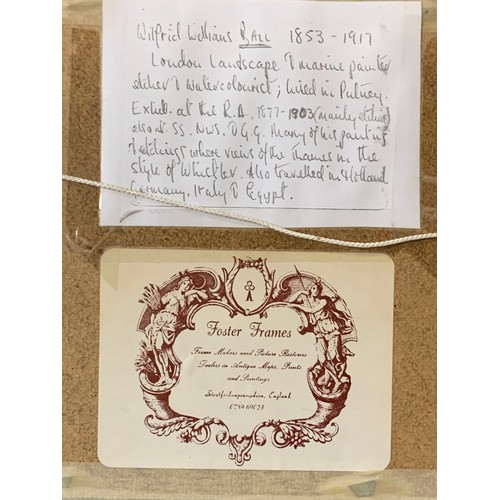 Wilfrid Williams BALL 1853 - 1917
London Landscape & marine painter
etcher & watercolourist; lived in Putney.
Exhib. at the R.A. 1877-1903 (mainly etchings)
also at SS. NWS. & GG. Many of his painting
& etchings where views of the Thames in the
style of Whistler. Also travelled in Holland
Germany, Italy & Egypt.
Foster Frames
Frame Makers and Picture Restorers
Dealers in Antique Maps, Prints
and Paintings
Stratford-upon-Avon, England
0789 69028